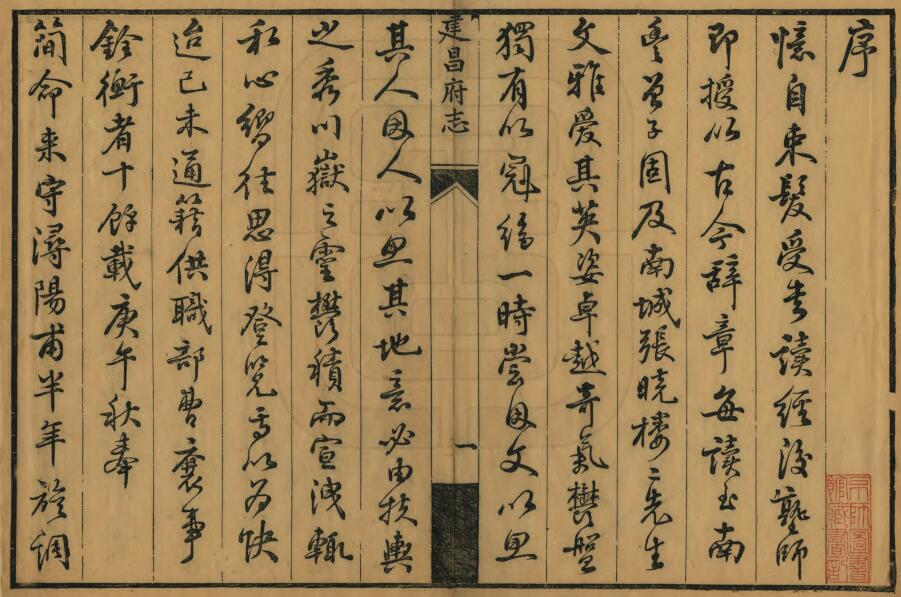 序
憶自束髮受書讀經後塾師
即授以古今辭章每讀至南
豐曾子固及南城張曉樓二先生
文雅愛其英姿卓越奇氣鬱盤
獨有以冠絕一時嘗因文以思
建昌府志
一
其人因人以思其地意必由扶輿
之秀川嶽之靈鬱積而宣洩輒
私心嚮往思得登覽焉以為快
迨己未通籍供職部曹襄事
銓衡者十餘載庚午秋奉
簡命來守潯陽甫半年旋調
京師圖書
館藏書記